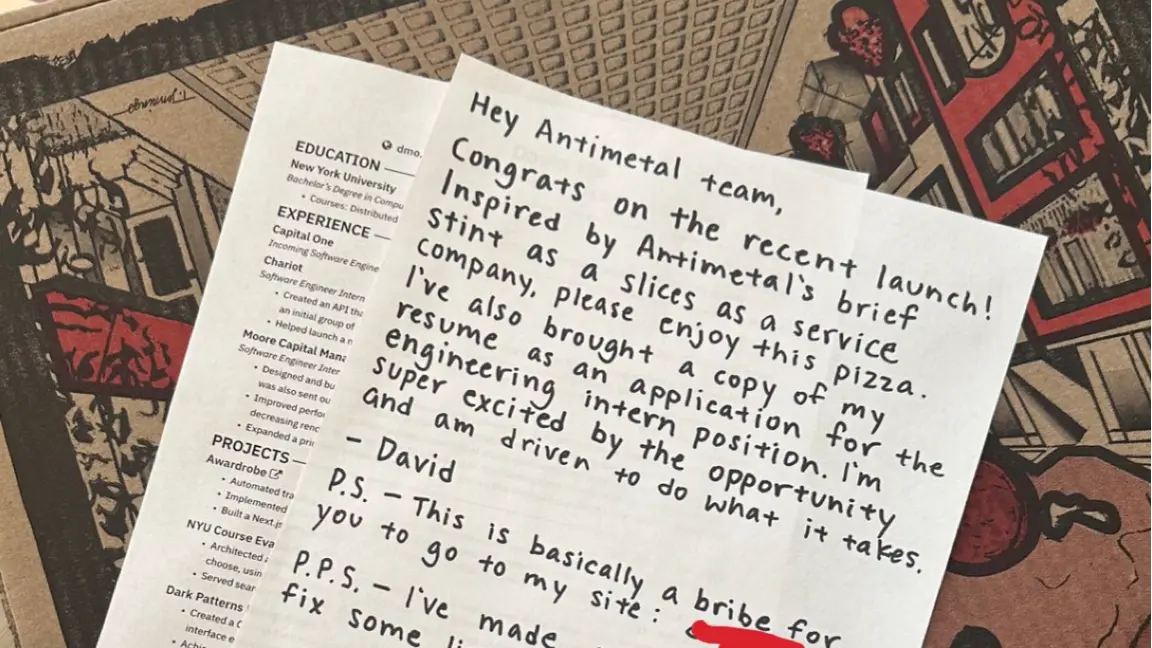 dmo.
EDUCATION
New York University
Bachelor's Degree in Compu
• Courses: Distributed
EXPERIENCE
Capital One
Incoming Software Engine
Chariot
Software Engineer Intern
• Created an API tha
an initial group of
• Helped launch a n
Moore Capital Mana
Software Engineer Inter
• Designed and bu
was also sent ou
• Improved perfo
decreasing renc
• Expanded a pri
PROJECTS
Awardrobe
• Automated tra
• Implemented
• Built a Next.js
NYU Course Eva
• Architected a
choose, usin
• Served sear
Dark Patterns
• Created a C
interface e
• Achi
Hey Antimetal team,
Congrats on the recent launch!
Inspired by Antimetal's brief
stint as a slices as a service
company, please enjoy this pizza.
I've also brought a copy of my
resume as an application for the
engineering intern position. I'm
super excited by the opportunity
and am driven to do what it takes.
- David
P.S. - This is basically a bribe for
you to go to my site:
P.P.S. - I've made
fix some li